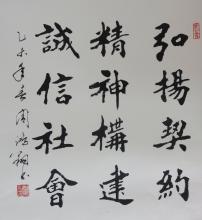 弘揚契約
精神構建
誠信社會
乙未年春周鴻翔书